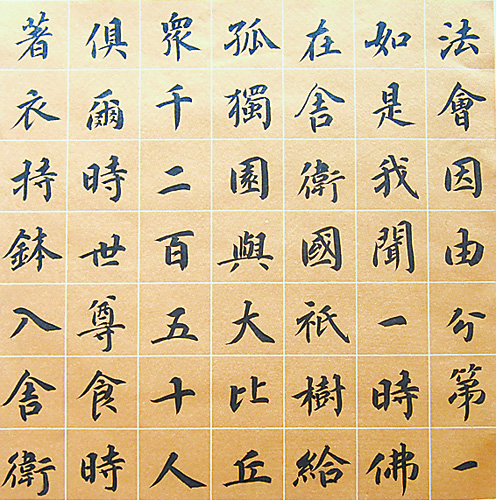 法會因由分第一
如是我聞一時佛
在舍衛國祇樹給
孤獨園與大比丘
衆千二百五十人
俱爾時世尊食時
著衣持鉢入舍衛